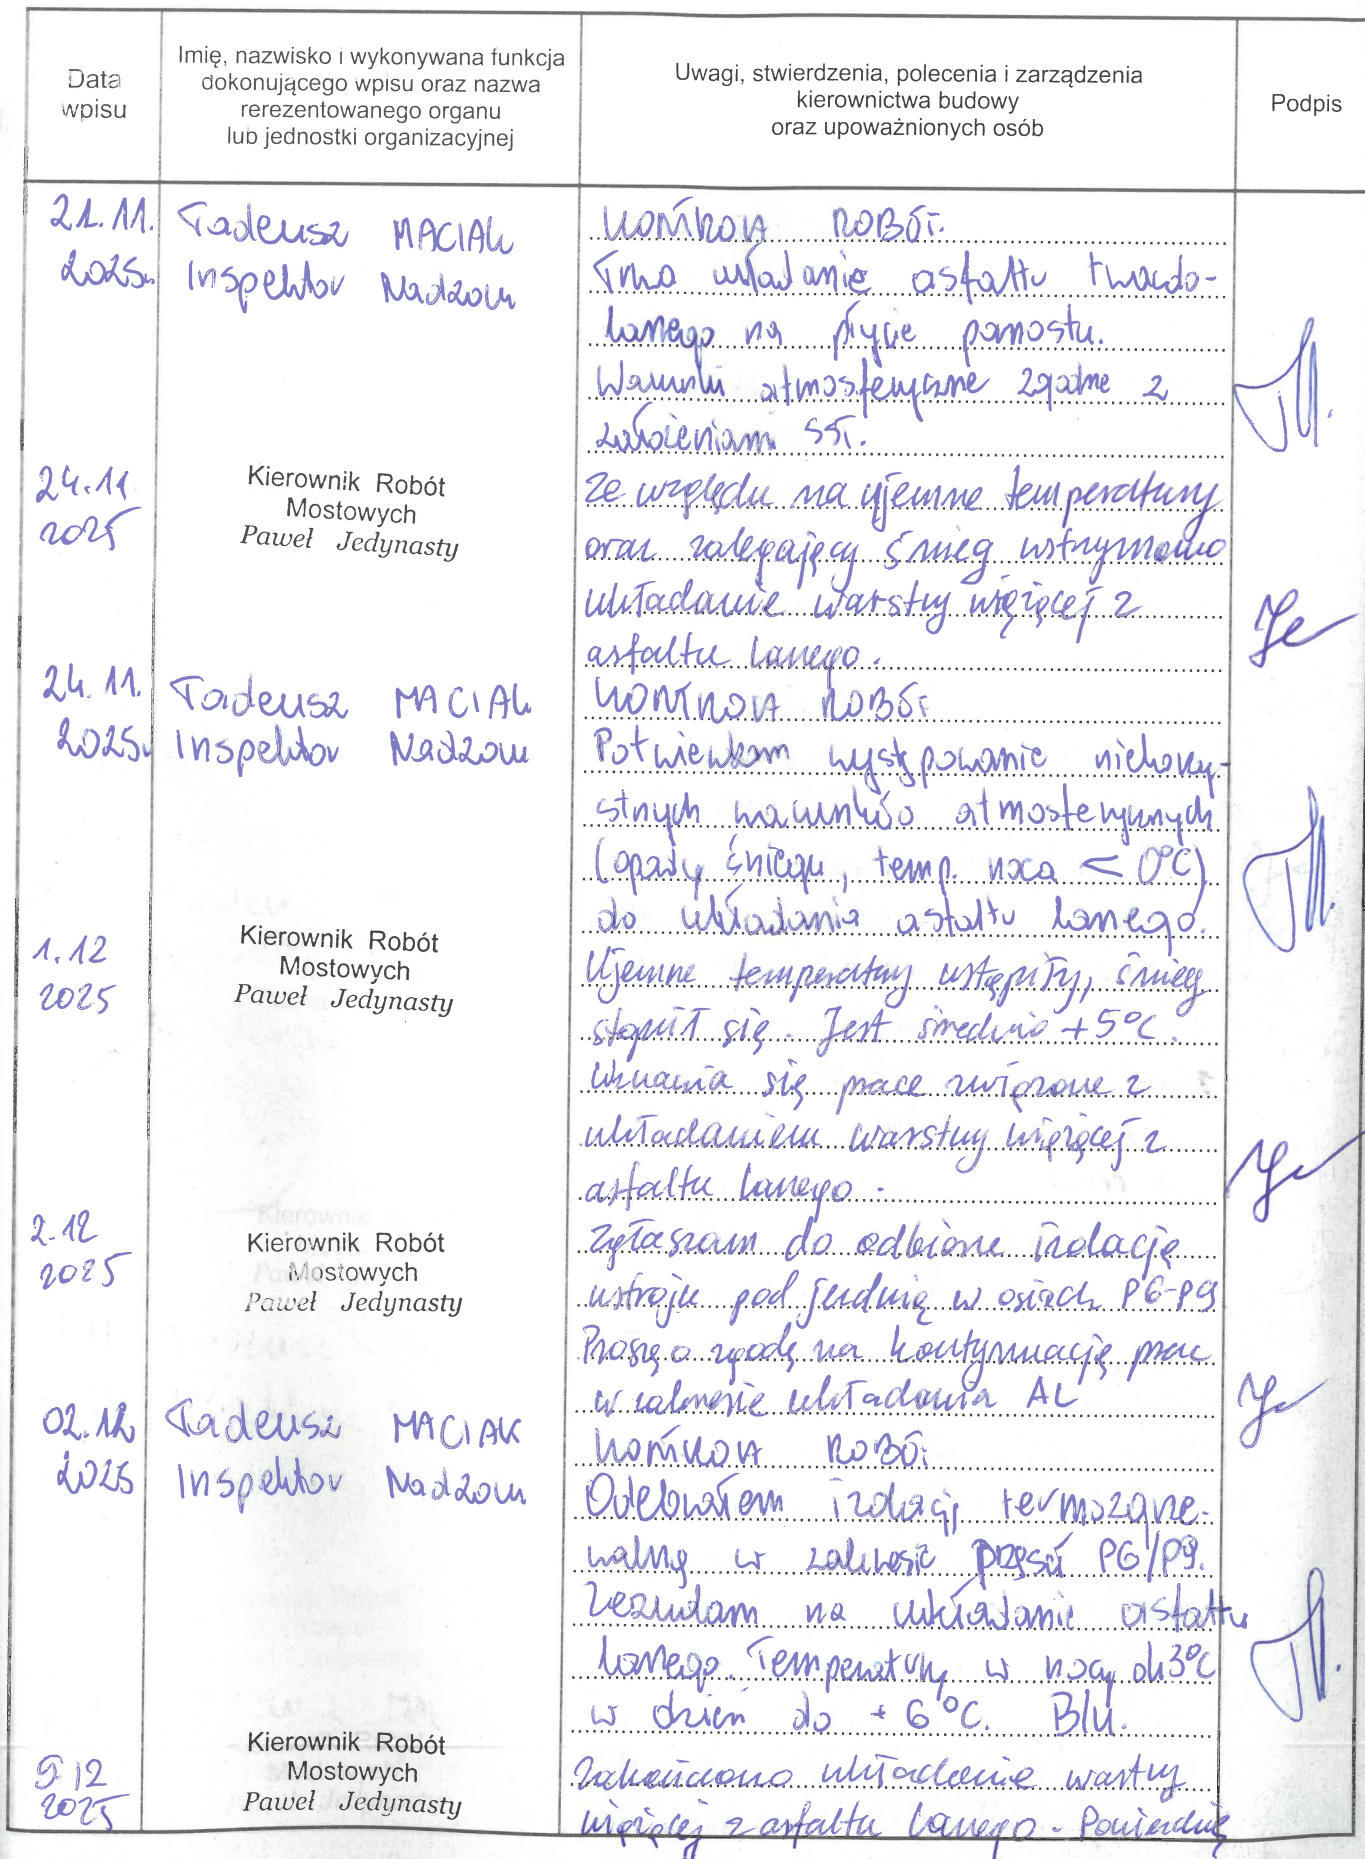 Data
wpisu
Imię, nazwisko i wykonywana funkcja
dokonującego wpisu oraz nazwa
rerezentowanego organu
lub jednostki organizacyjnej
Uwagi, stwierdzenia, polecenia i zarządzenia
kierownictwa budowy
oraz upoważnionych osób
Podpis
21.11.
2025r.
Tadeusz MACIAK
Inspektor Nadzoru
KONTROLA ROBÓT.
Trwa układanie asfaltu twardo-
lanego na płycie pomostu.
Warunki atmosferyczne zgodne z
założeniami SST.
24.11
2025
Kierownik Robót
Mostowych
Paweł Jedynasty
Ze względu na ujemne temperatury
oraz zalegający śnieg wstrzymano
układanie warstwy wiążącej z
asfaltu lanego.
24.11.
2025r
Tadeusz MACIAK
Inspektor Nadzoru
KONTROLA ROBÓT
Potwierdzam występowanie niekorzy-
stnych warunków atmosferycznych
(opady śniegu, temp. nocą < 0°C)
do układania asfaltu lanego.
1.12
2025
Kierownik Robót
Mostowych
Paweł Jedynasty
Ujemne temperatury ustąpiły, śnieg
stopił się. Jest średnio +5°C.
Wznawia się prace związane z
układaniem warstwy wiążącej z
asfaltu lanego.
2.12
2025
Kierownik Robót
Mostowych
Paweł Jedynasty
Zgłaszam do odbioru izolację
ustroju pod jezdnią w osiach P6-P9
Proszę o zgodę na kontynuację prac
w zakresie układania AL
02.12
2025
Tadeusz MACIAK
Inspektor Nadzoru
KONTROLA ROBÓT
Odebrałem izolację termozgrze-
walną w zakresie przęseł P6/P9.
Zezwalam na układanie asfaltu
lanego. Temperatury w nocy ok 3°C
w dzień do +6°C. B/U.
9 12
2025
Kierownik Robót
Mostowych
Paweł Jedynasty
Zakończono układanie warstwy
wiążącej z asfaltu lanego.